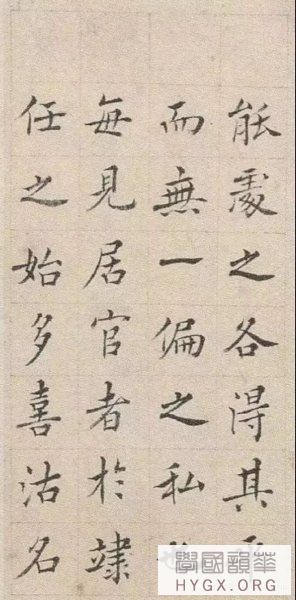 能處之各得其
而無一偏之私
每見居官者於
任之始多喜沽名
華韻國學
HYGX.ORG